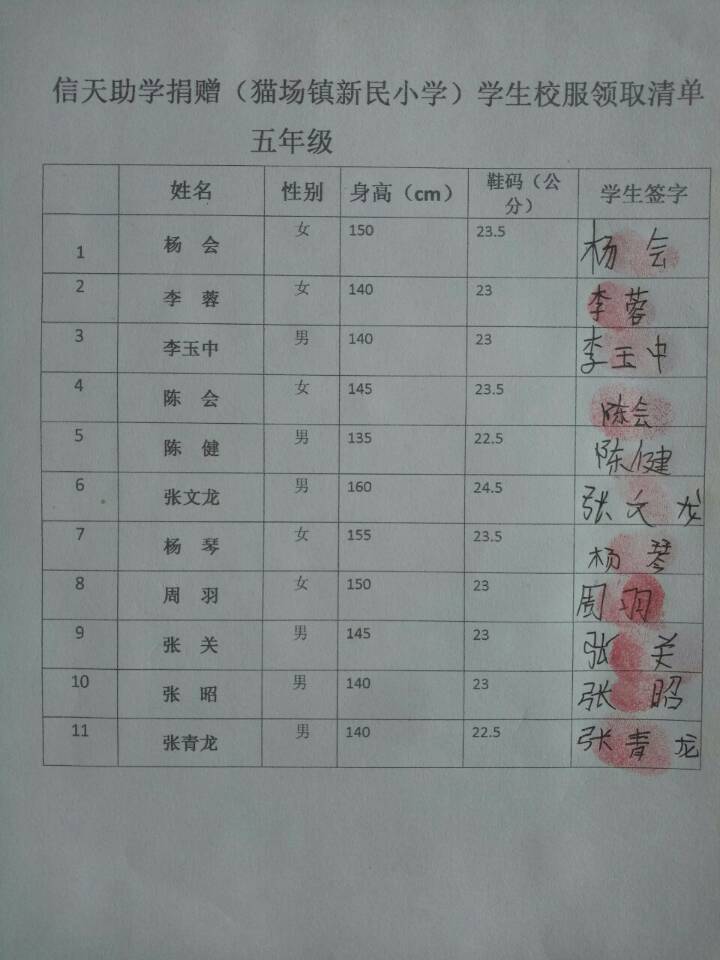 信天助学捐赠（猫场镇新民小学）学生校服领取清单
五年级
姓名 性别 身高（cm） 鞋码（公分） 学生签字
1 杨 会 女 150 23.5 杨 会
2 李 蓉 女 140 23 李 蓉
3 李玉中 男 140 23 李玉中
4 陈 会 女 145 23.5 陈会
5 陈 健 男 135 22.5 陈健
6 张文龙 男 160 24.5 张文龙
7 杨 琴 女 155 23.5 杨 琴
8 周 羽 女 150 23 周羽
9 张 关 男 145 23 张 关
10 张 昭 男 140 23 张 昭
11 张青龙 男 140 22.5 张青龙